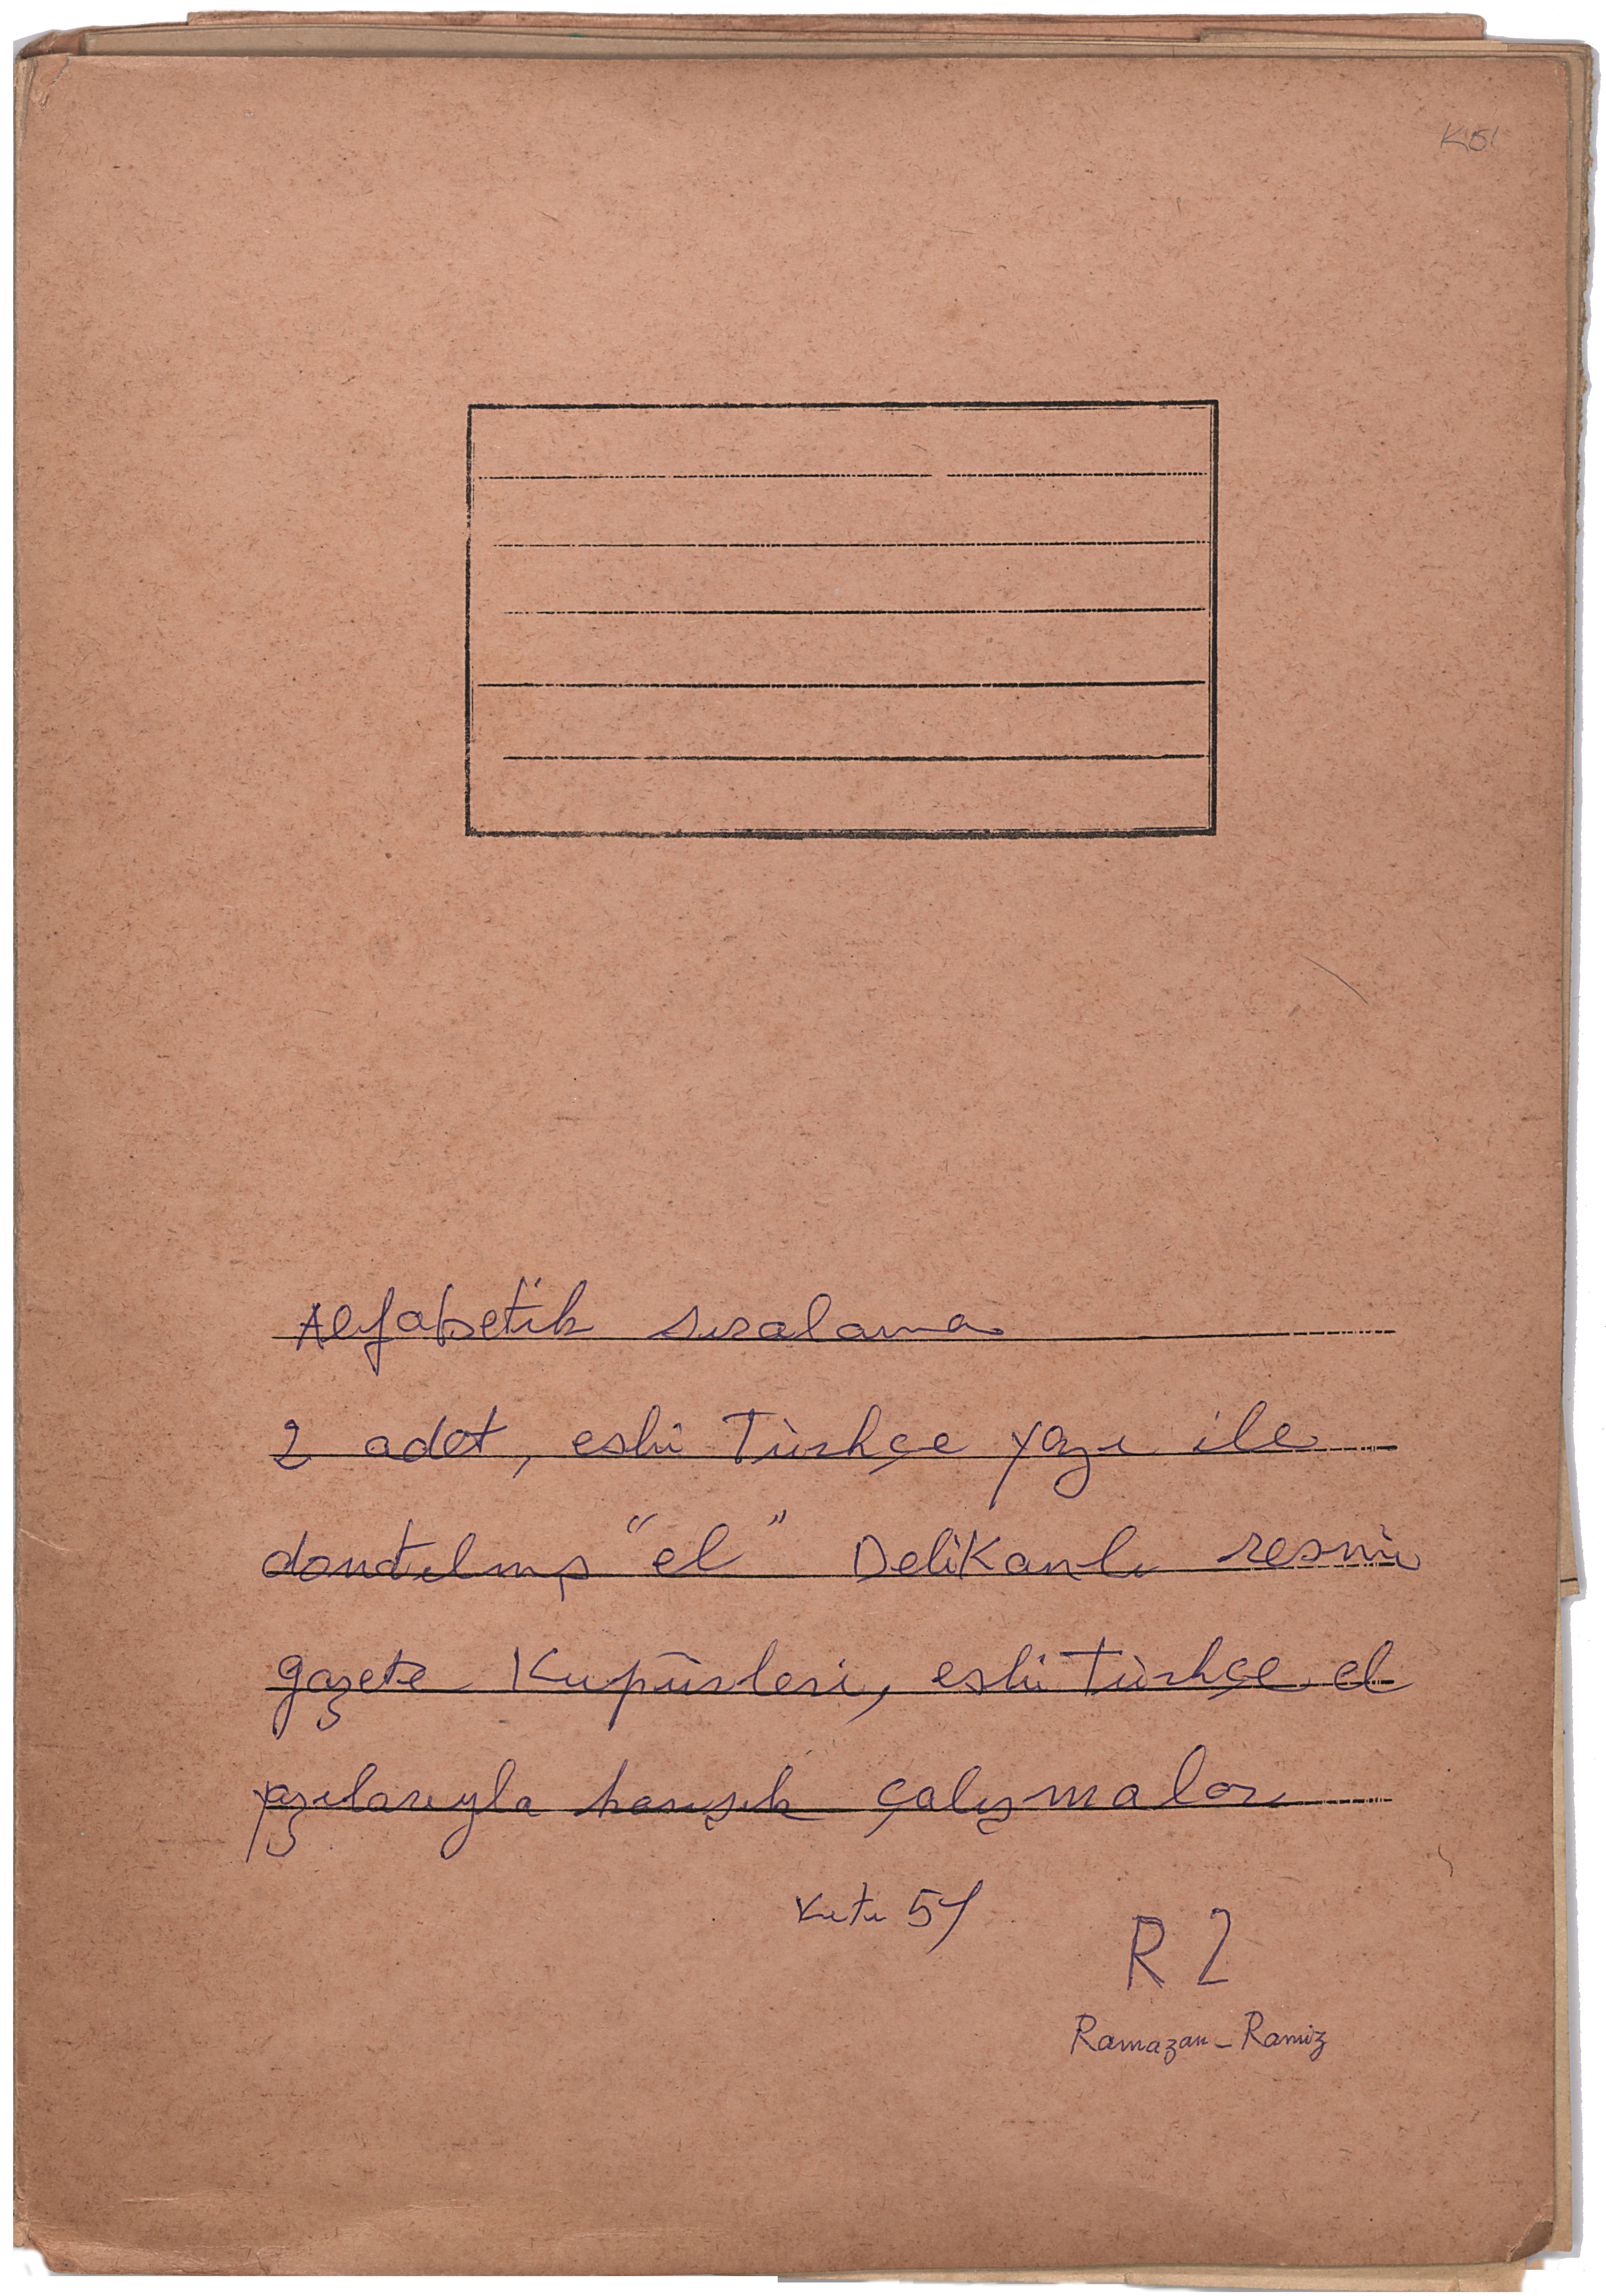 K51
Alfabetik sıralama
2 adet, eski Türkçe yazı ile
dondulmış "el" Delikanlı resmi
gazete Kupürleri, eski Türkçe el
yazılarıyla karışık çalışmalar
Kutu 51
R 2
Ramazan - Ramiz